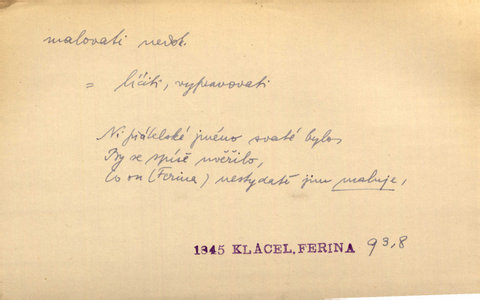 malovati nedok.
= líčiti, vypravovati
Ni přátelské jméno svaté bylo,
By se spíše uvěřilo,
Co on (Ferina) nestydatě jim maluje,
1845 KLÁCEL, FERINA 93,8